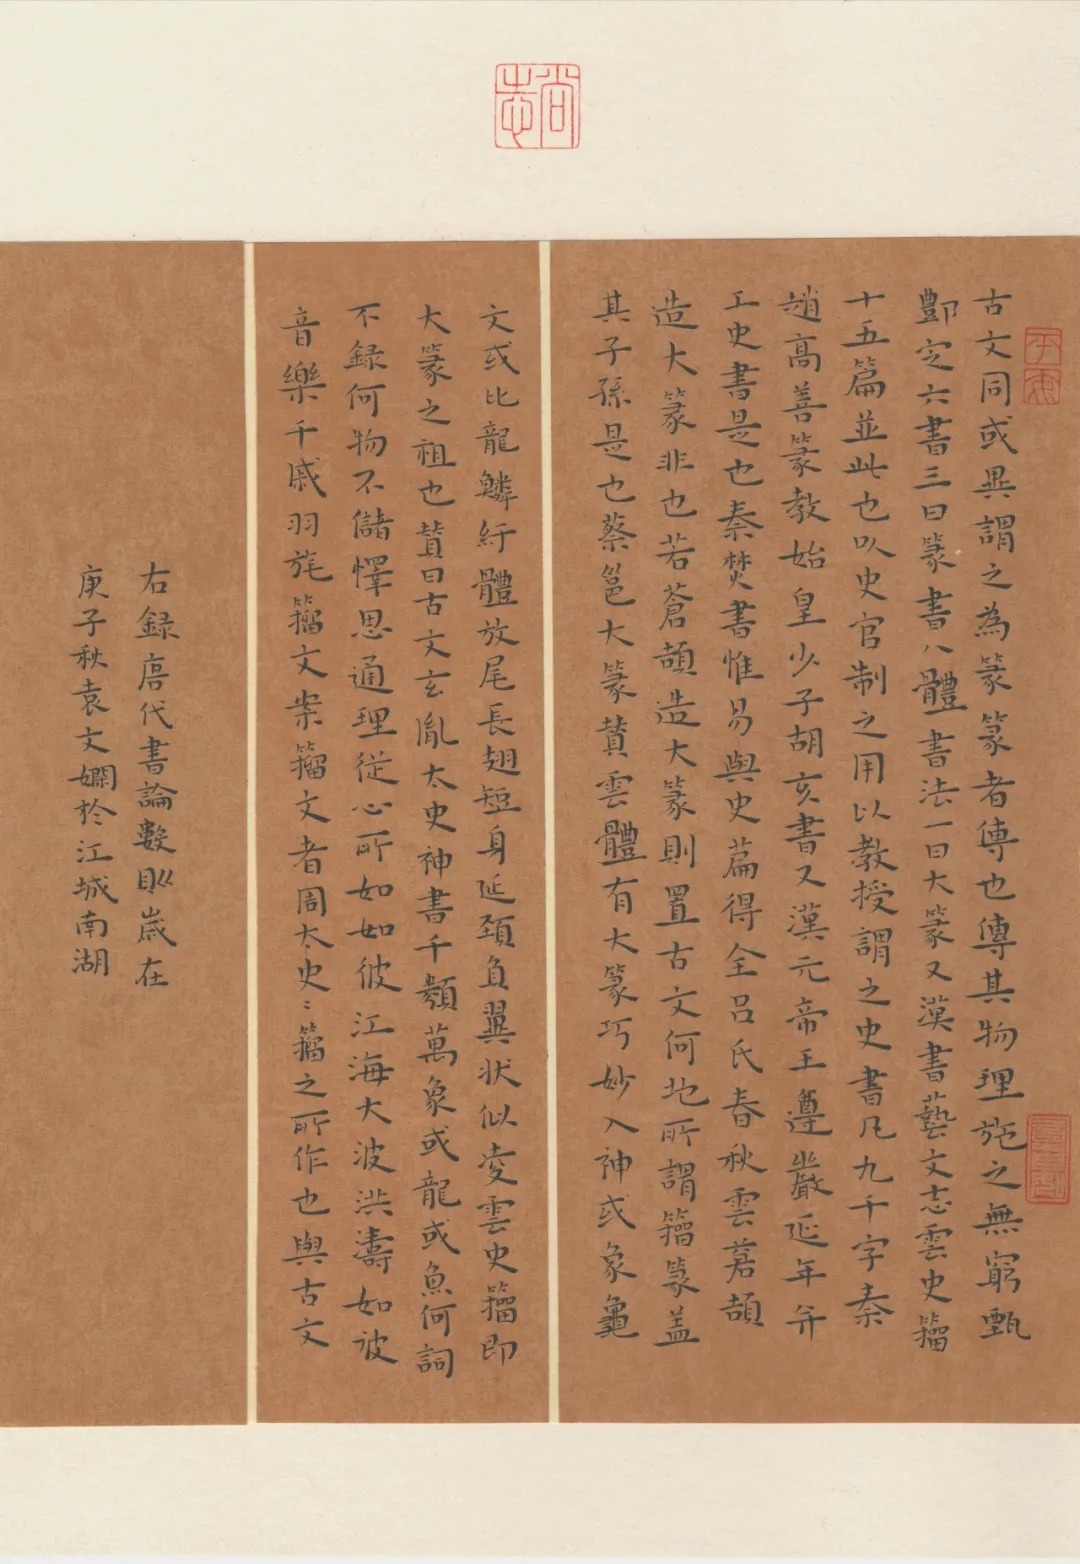 尚志
古文同或異謂之為篆篆者傳也傳其物理施之無窮甄
酆定六書三曰篆書八體書法一曰大篆又漢書藝文志雲史籀
十五篇並此也以史官制之用以教授謂之史書凡九千字秦
趙高善篆教始皇少子胡亥書又漢元帝王遵嚴延年並
工史書是也秦焚書惟易與史篇得全呂氏春秋雲蒼頡
造大篆非也若蒼頡造大篆則置古文何地所謂籀篆蓋
其子孫是也蔡邕大篆贊雲體有大篆巧妙入神或象龜
文或比龍鱗紆體放尾長翅短身延頸負翼狀似淩雲史籀即
大篆之祖也贊曰古文玄胤太史神書千類萬象或龍或魚何詞
不録何物不儲懌思通理從心所如如彼江海大波洪濤如彼
音樂干戚羽旄籀文案籀文者周太史史籀之所作也與古文
右録唐代書論數則歲在
庚子秋袁文嫻於江城南湖